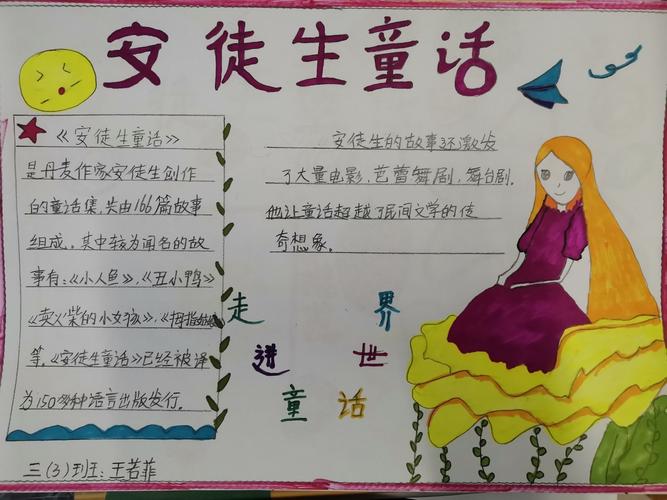 安徒生童话
《安徒生童话》
是丹麦作家安徒生创作
的童话集，共由166篇故事
组成。其中较为闻名的故
事有：《小人鱼》，《丑小鸭》
《卖火柴的小女孩》，《拇指姑娘》
等。《安徒生童话》已经被译
为150多种语言出版发行。
安徒生的故事还激发
了大量电影，芭蕾舞剧，舞台剧。
他让童话超越了民间文学的传
奇想象。
走
进
童话
世
界
三（3）班：王若菲